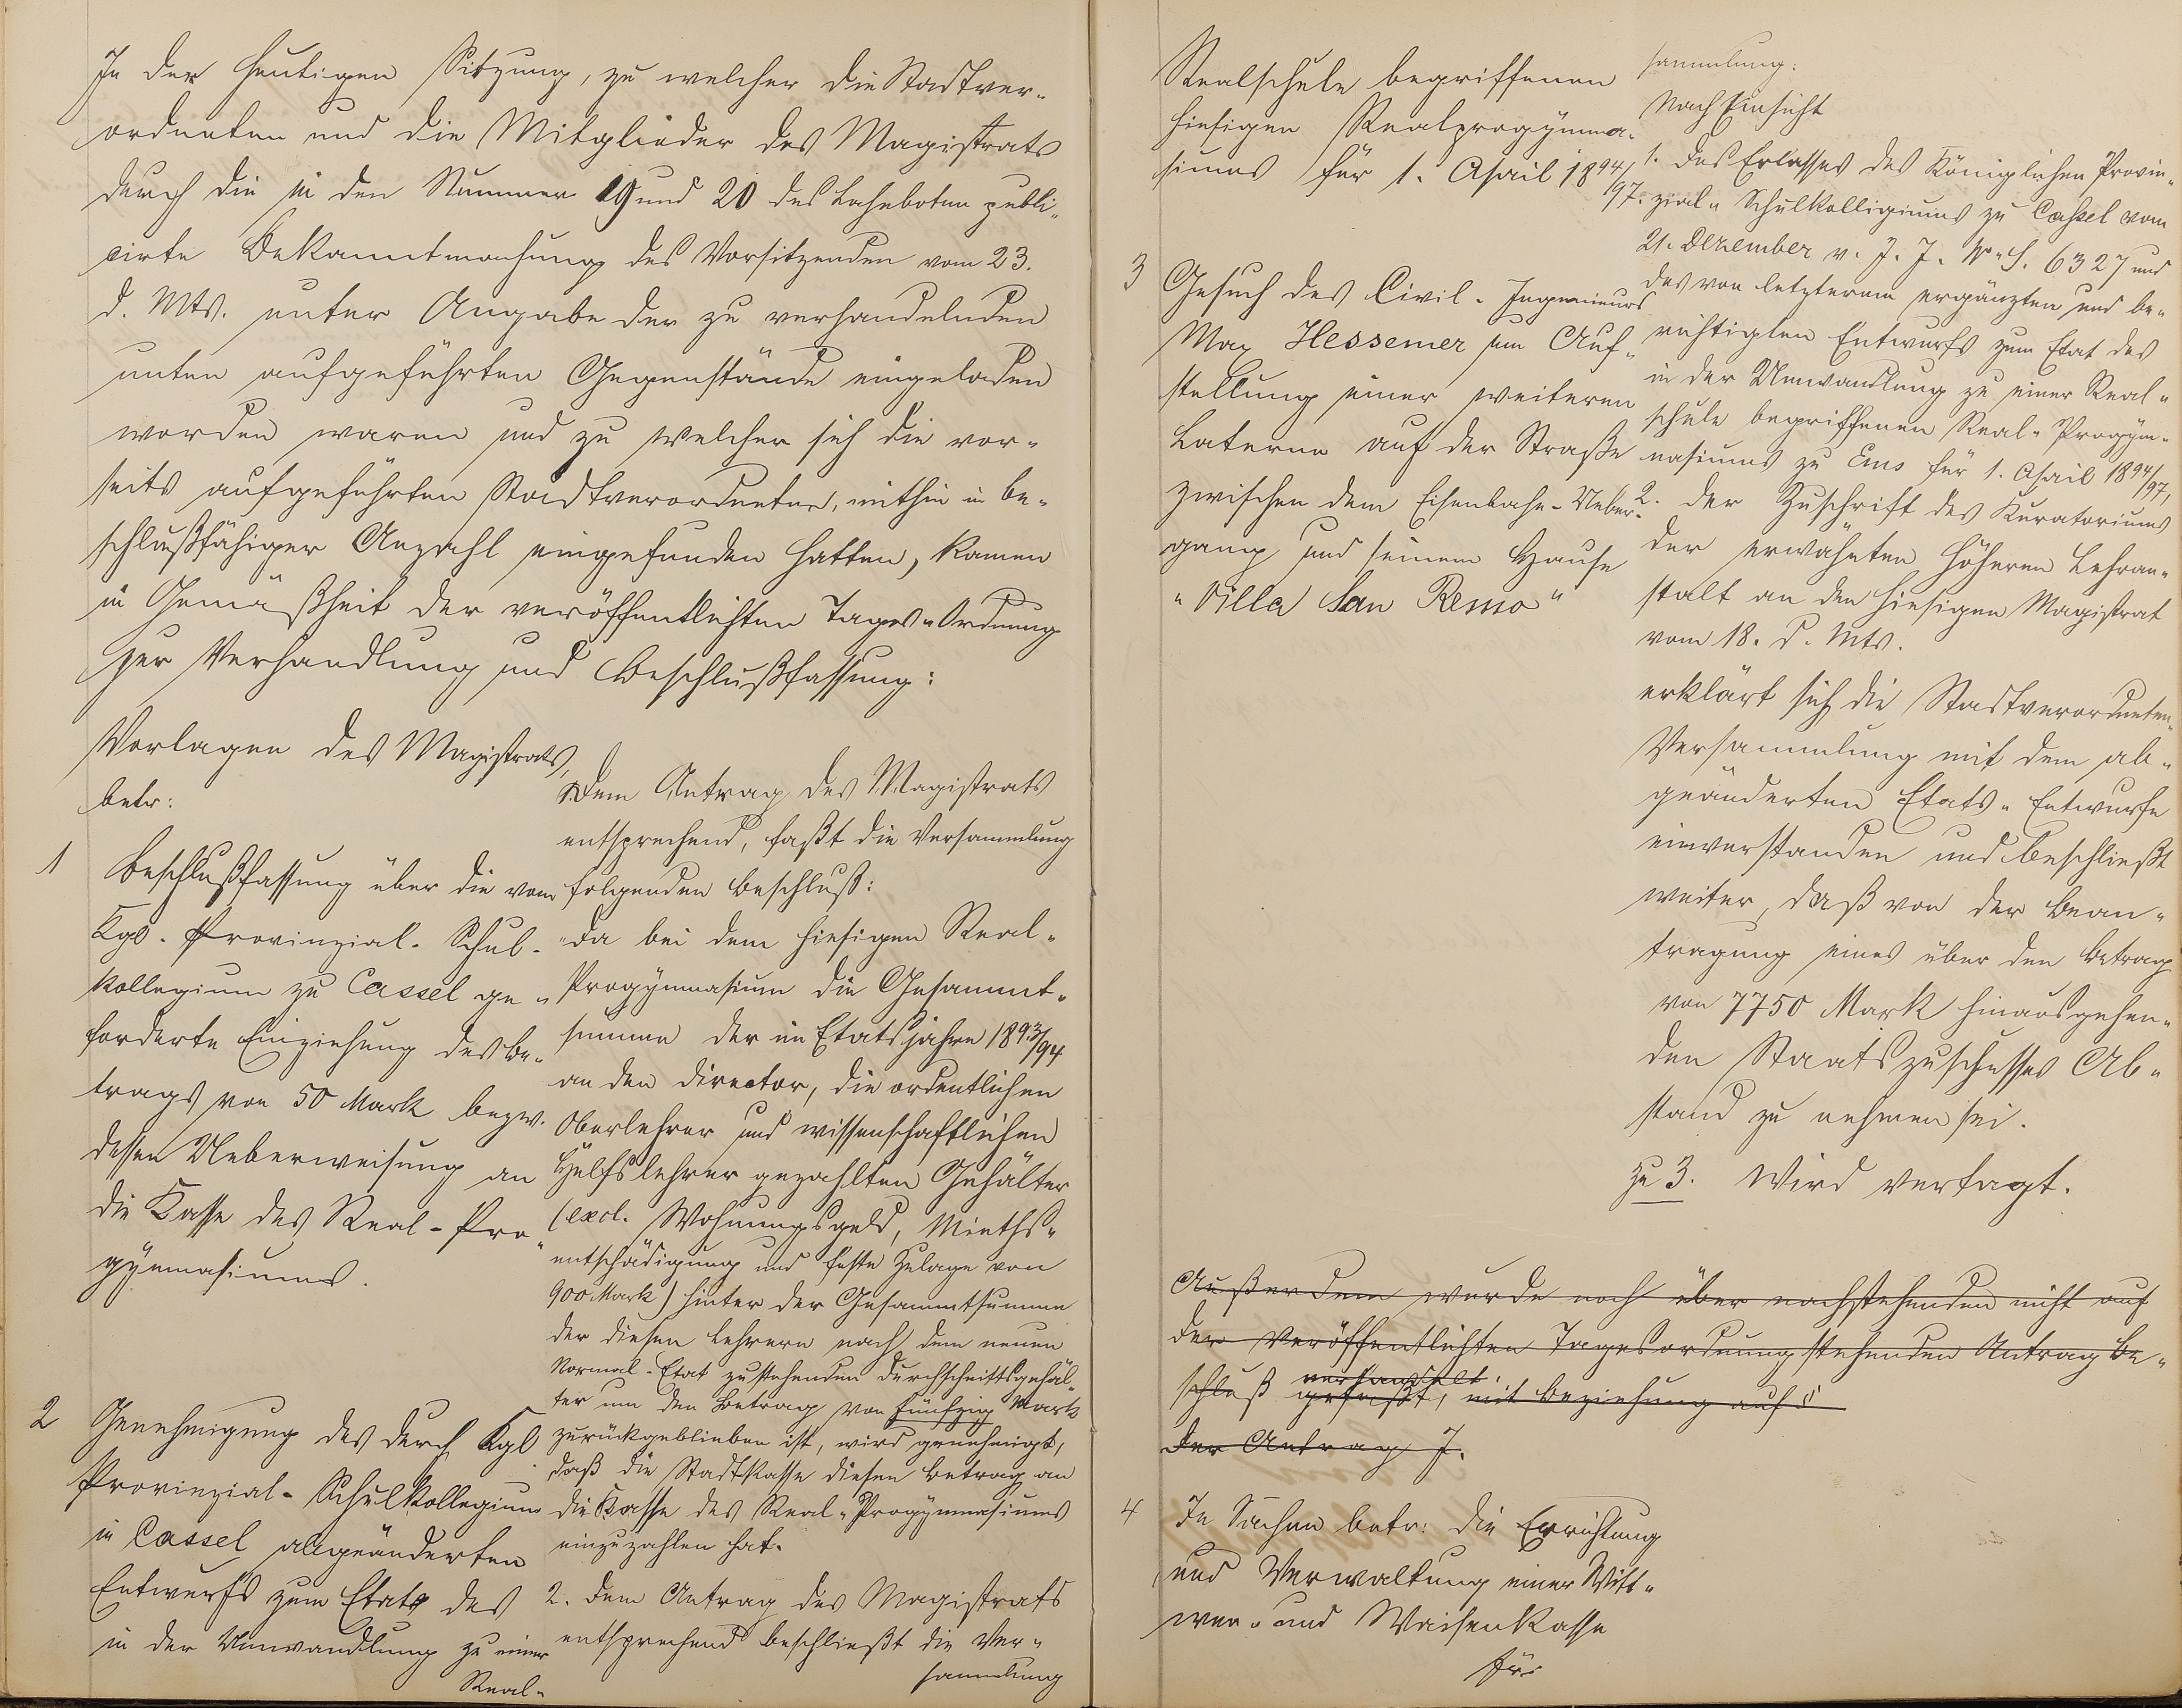 In der heutigen Sitzung, zu welcher die Stadtver-
ordneten und die Mitglieder des Magistrats
durch die in den Nummer 19 und 20 des Lahnboten publi-
cirte Bekanntmachung des Vorsitzenden vom 23.
d. Mts. unter Angabe der zu verhandelnden
unten aufgeführten Gegenstände eingeladen
worden waren und zu welcher sich die vor-
seits aufgeführten Stadtverordneten, mithin in be-
schlußfähiger Anzahl eingefunden hatten, kamen
in Gemäßheit der veröffentlichten Tages-Ordnung
zur Verhandlung und Beschlußfassung:
Vorlagen des Magistrats,
betr:
1 Beschlußfassung über die vom
Kgl. Provinzial-Schul-
kollegium zu Cassel ge-
forderte Einziehung des Be-
trags von 50 Mark bezw.
dessen Ueberweisung an
die Kasse des Real-Pro-
gymnasiums.
2 Genehmigung des durch Kgl.
Provinzial-Schulkollegium
in Cassel abgeänderten
Entwurfs zum Etat des
in der Umwandlung zu einer
Real-
1. Dem Antrag des Magistrats
entsprechend, faßt die Versammlung
folgenden Beschluß:
"Da bei dem hiesigen Real-
Progymnasium die Gesammt-
summe der im Etatsjahre 1893/94
an den Director, die ordentlichen
Oberlehrer und wissenschaftlichen
Hülfslehrer gezahlten Gehälter
(excl. Wohnungsgeld, Mieths-
entschädigung und feste Zulage von
900 Mark) hinter der Gesammtsumme
der diesen Lehrern nach dem neuen
Normal-Etat zustehenden Durchschnittsgehäl-
ter um den Betrag von fünfzig Mark
zurückgeblieben ist, wird genehmigt,
daß die Stadtkasse diesen Betrag an
die Kasse des Real-Progymnasiums
einzuzahlen hat.
2. Dem Antrag des Magistrats
entsprechend beschließt die Ver-
sammlung
Realschule begriffenen
hiesigen Realprogymna-
siums für 1. April 1894/97.
3 Gesuch des Civil-Ingenieurs
Max Hessemer um Auf-
stellung einer weiteren
Laterne auf der Straße
zwischen dem Eisenbahn-Ueber-
gang und seinem Hause
"Villa San Remo"
sammlung:
Nach Einsicht
1. des Erlasses des Königlichen Provin-
zial-Schulkollegiums zu Cassel vom
21. Dezember v. J. J. No. S. 6327 und
des von letzterem ergänzten und be-
richtigten Entwurfs zum Etat des
in der Umwandlung zu einer Real-
schule begriffenen Real-Progym-
nasiums zu Ems für 1. April 1894/97,
2. der Zuschrift des Kuratoriums
der erwähnten höheren Lehran-
stalt an den hiesigen Magistrat
vom 18. d. Mts.
erklärt sich die Stadtverordneten-
Versammlung mit dem ab-
geänderten Etats-Entwurfe
einverstanden und beschließt
weiter, daß von der Bean-
tragung eines über den Betrag
von 7750 Mark hinausgehen-
den Staatszuschusses Ab-
stand zu nehmen sei.
zu 3. Wird vertagt.
Außerdem wurde noch über nachstehenden nicht auf
der veröffentlichten Tagesordnung stehenden Antrag Be-
verhandelt.
schluß gefaßt, mit Beziehung auf §
der Antrag J.
4 In Sachen betr: die Errichtung
und Verwaltung einer Witt-
wen- und Waisenkasse
für